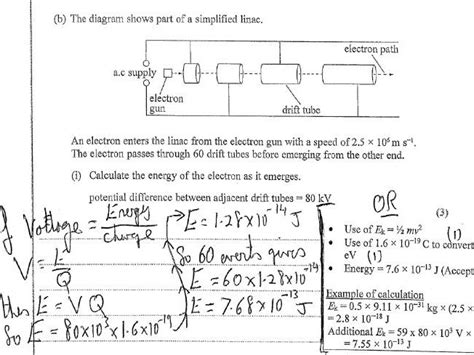 (b) The diagram shows part of a simplified linac.
electron path
a.c supply
electron
gun
drift tube
An electron enters the linac from the electron gun with a speed of 2.5 × 10⁶ m s⁻¹.
The electron passes through 60 drift tubes before emerging from the other end.
(i) Calculate the energy of the electron as it emerges.
potential difference between adjacent drift tubes = 80 kV
(3)
Voltage = Energy
charge
V = E
Q
E = VQ
So E = 80×10³ × 1.6×10⁻¹⁹
E = 1.28×10⁻¹⁴ J
So 60 events gives
E = 60×1.28×10⁻¹⁴
E = 7.68×10⁻¹³ J
OR
• Use of Eₖ = ½ mv² (1)
• Use of 1.6 × 10⁻¹⁹ C to convert
eV (1)
• Energy = 7.6 × 10⁻¹³ J (Accept
Example of calculation
Eₖ = 0.5 × 9.11 × 10⁻³¹ kg × (2.5 ×
= 2.8 × 10⁻¹⁸ J
Additional Eₖ = 59 x 80 x 10³ V ×
= 7.55 × 10⁻¹³ J